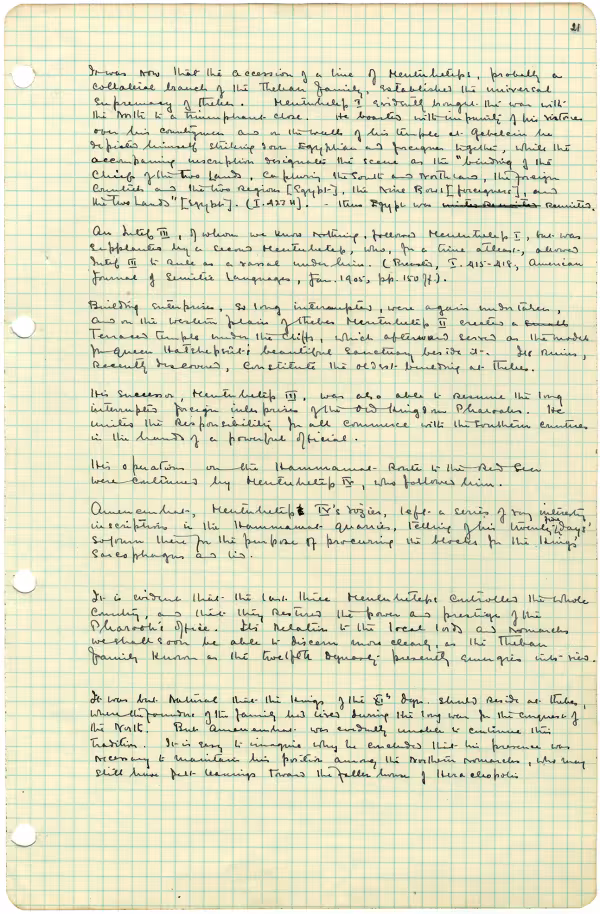 21
It was now that the accession of a line of Mentuhoteps, probably a
collateral branch of the Theban family, established the universal
supremacy of Thebes. Mentuhotep I evidently brought the war with
the North to a triumphant close. He boasted with impunity of his victories
over his countrymen and on the walls of his temple at Gebelein he
depicted himself striking down Egyptian and foreigner together, while the
accompanying inscription designates the scene as the "binding of the
Chiefs of the two Lands, capturing the South and Northland, the foreign
Countries and the two regions [Egypt], the Nine Bows [foreigners], and
the two Lands" [Egypt]. (I. 423 H). - Thus Egypt was reunited.
An Intef III, of whom we know nothing, followed Mentuhotep I, but was
supplanted by a second Mentuhotep, who, for a time at least, allowed
Intef III to rule as a vassal under him. (Breasted, I. 415-418, American
Journal of Semitic Languages, Jan. 1905, pp. 150 ff.).
Building enterprise, so long interrupted, were again undertaken,
and on the western plain of Thebes Mentuhotep II erected a small
Terraced temple under the cliffs, which afterward served as the model
for queen Hatshepsut's beautiful sanctuary beside it. Its ruins,
recently discovered, constitute the oldest building at Thebes.
His successor, Mentuhotep III, was also able to resume the long
interrupted foreign enterprises of the Old Kingdom Pharaohs. He
unites the responsibility for all commerce with the southern countries
in the hands of a powerful official.
His operations on the Hammamat Route to the Red Sea
were continued by Mentuhotep IV, who followed him.
Amenemhat, Mentuhotep IV's vizier, left a series of very interesting
inscriptions in the Hammamat quarries, telling of his twenty five days'
sojourn there for the purpose of procuring the blocks for the King's
Sarcophagus and lid.
It is evident that the last three Mentuhoteps controlled the whole
Country, and that they restored the power and prestige of the
Pharaoh's office. Its relation to the local lords and nomarchs
we shall soon be able to discern more clearly, as the Theban
family known as the twelfth Dynasty presently emerges into view.
It was but natural that the kings of the XIth Dyn. should reside at Thebes,
where the founders of the family had lived during the long war for the conquest of
the North. But Amenemhat was evidently unable to continue this
tradition. It is easy to imagine why he concluded that his presence was
necessary to maintain his position among the Northern nomarchs, who may
still have felt leanings toward the fallen house of Heracleopolis